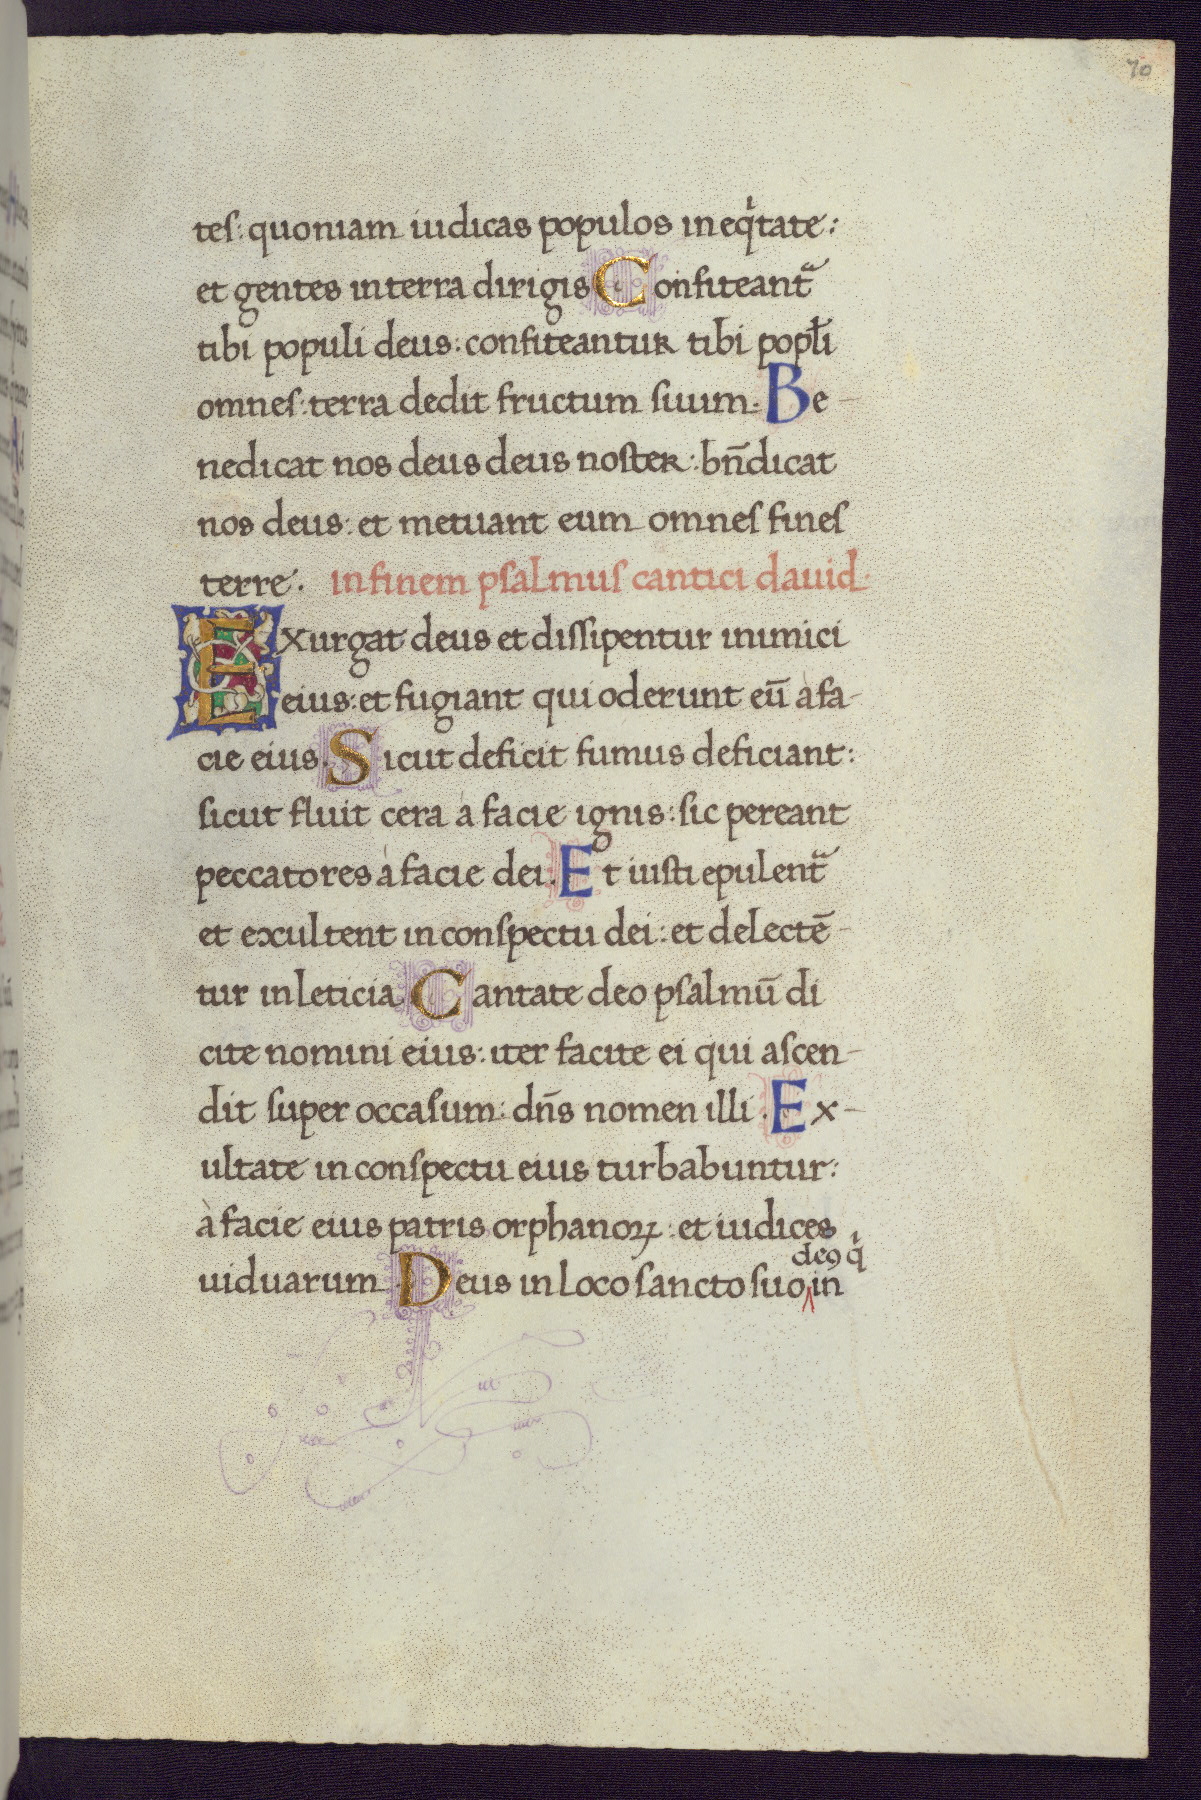 70
tes: quoniam iudicas populos in eq̍tate:
et gentes in terra dirigis Confiteant᷑
tibi populi deus: confiteantur tibi popl̄i
omnes: terra dedit fructum suum. Be-
nedicat nos deus deus noster: bn̄dicat
nos deus: et metuant eum omnes fines
terre. in finem psalmus cantici dauid.
Exurgat deus et dissipentur inimici
eius: et fugiant qui oderunt eū à fa-
cie eius. Sicut deficit fumus deficiant:
sicut fluit cera à facie ignis: sic pereant
peccatores à facie dei. Et iusti epulent᷑
et excultent in conspectu dei: et delectē-
tur in leticia Cantate deo psalmū di
cite nomini eius: iter facite ei qui ascen-
dit super occasum: dn̄s nomen illi. Ex-
ultate in conspectu eius turbabuntur:
à facie eius patris orphanoꝝ: et iudices
uiduarum. Deus in loco sancto suo ‸ in
deꝯ q̍